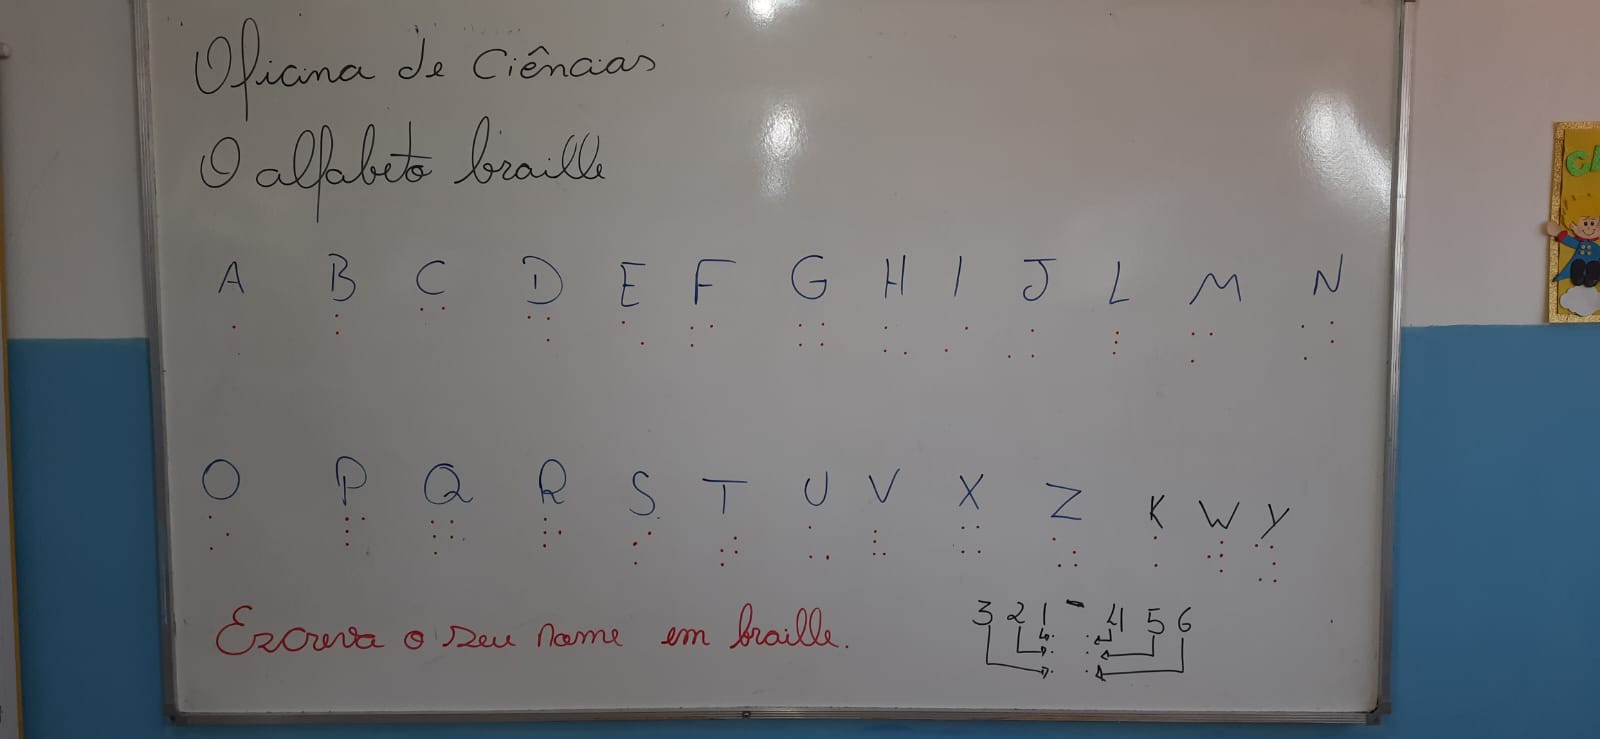 Oficina de Ciências
O alfabeto braille
A B C D E F G H I J L M N
O P Q R S T U V X Z K W Y
Escreva o seu nome em braille.
3 2 1 - 4 5 6